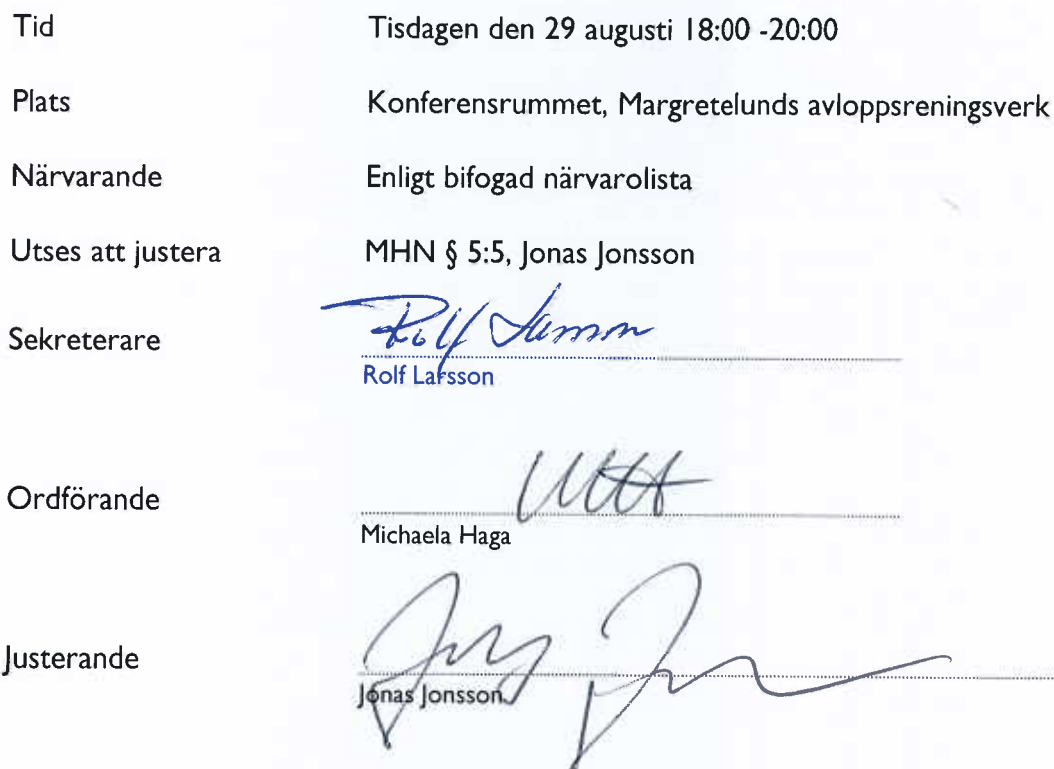 Tid Tisdagen den 29 augusti 18:00 -20:00
Plats Konferensrummet, Margretelunds avloppsreningsverk
Närvarande Enligt bifogad närvarolista
Utses att justera MHN § 5:5, Jonas Jonsson
Sekreterare
Rolf Larsson
Ordförande
Michaela Haga
Justerande
Jonas Jonsson